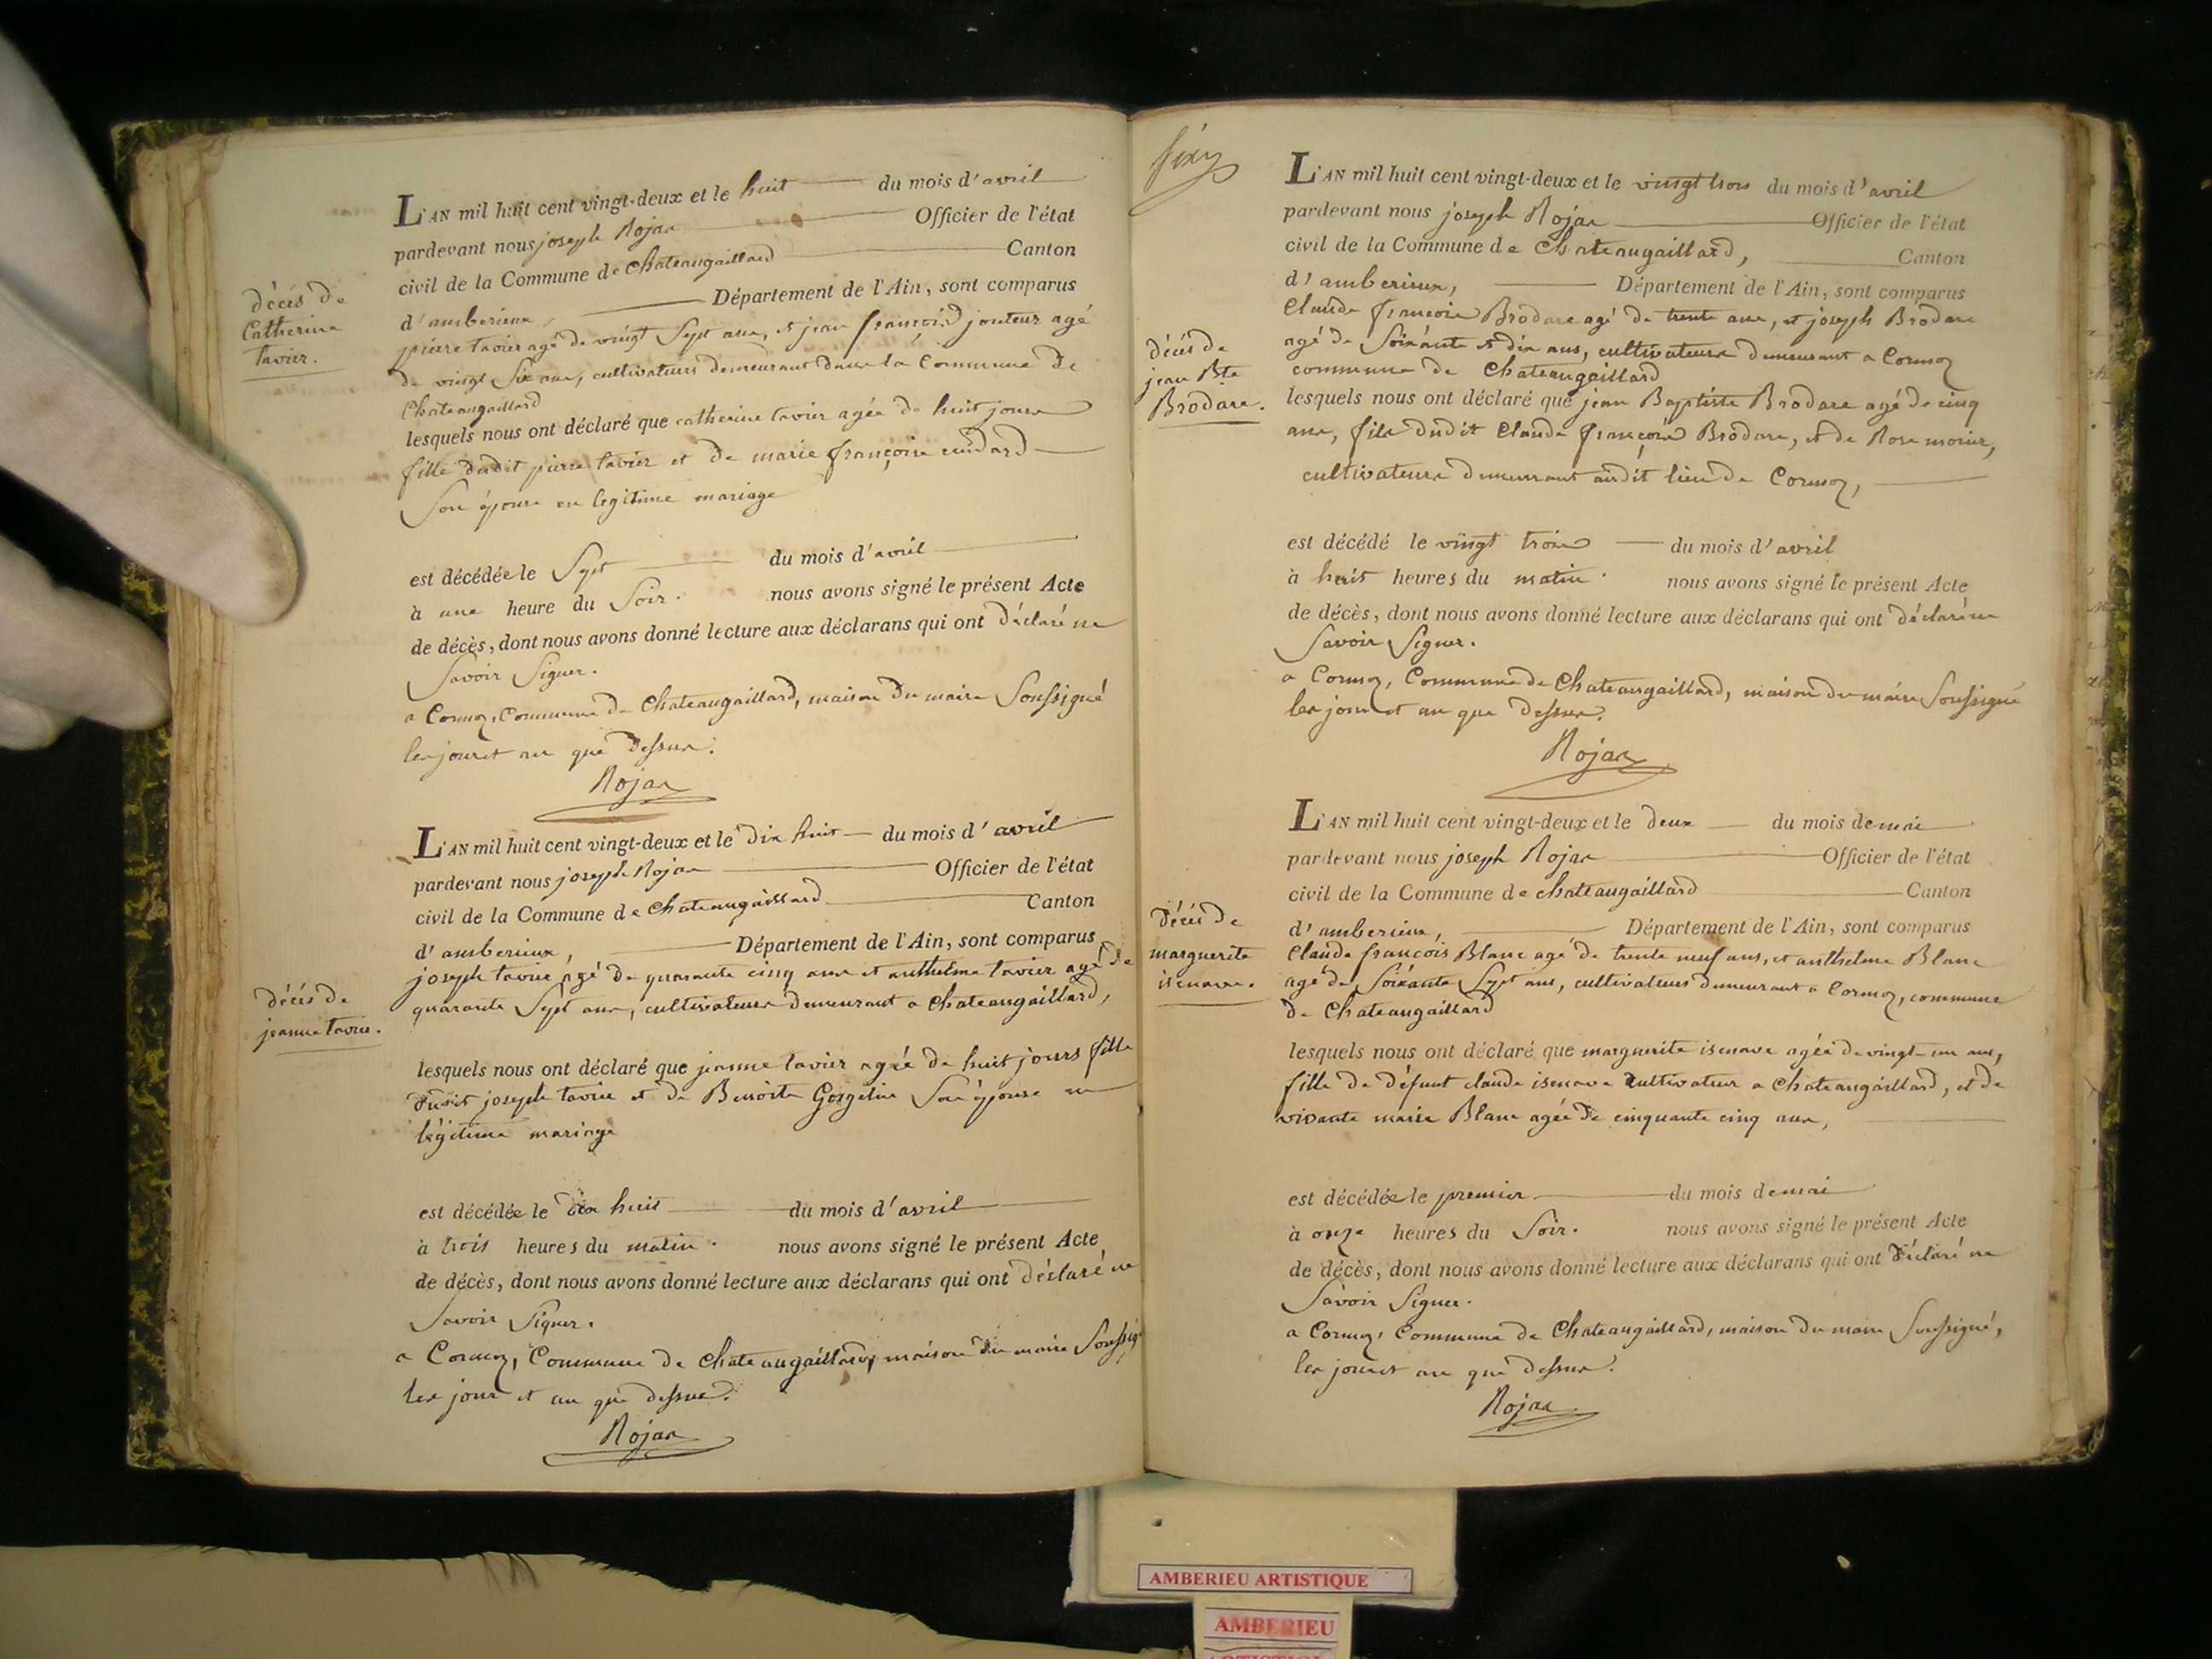 décès de
Catherine
tavier.
L'AN mil huit cent vingt-deux et le huit du mois d'avril
pardevant nous joseph Rojas Officier de l'état
civil de la Commune de Chateaugaillard Canton
d'amberieux, Département de l'Ain, sont comparus
pierre tavier agé de vingt Sept ans, et jean françois jouteur agé
de vingt Six ans, cultivateurs demeurant dans la Commune de
Chateaugaillard
lesquels nous ont déclaré que catherine tavier agée de huit jours
fille dudit pierre tavier et de marie françoise
Son épouse en legitime mariage
est décédée le Sept du mois d'avril
à une heure du Soir. nous avons signé le présent Acte
de décès, dont nous avons donné lecture aux déclarans qui ont déclaré ne
Savoir Signer.
a Cormoz, Commune de Chateaugaillard, maison du maire Soussigné
les jour et an que dessus.
Rojas
décès de
jeanne tavier.
L'AN mil huit cent vingt-deux et le dix huit du mois d'avril
pardevant nous joseph Rojas Officier de l'état
civil de la Commune de Chateaugaillard Canton
d'amberieux, Département de l'Ain, sont comparus
joseph tavier agé de quarante cinq ans et anthelme tavier agé de
quarante Sept ans, cultivateurs demeurant a Chateaugaillard,
lesquels nous ont déclaré que jeanne tavier agée de huit jours fille
dudit joseph tavier et de Benoite Gorgelin Son épouse en
légitime mariage
est décédée le dix huit du mois d'avril
à trois heures du matin. nous avons signé le présent Acte
de décès, dont nous avons donné lecture aux déclarans qui ont déclaré ne
Savoir Signer.
a Cormoz, Commune de Chateaugaillard, maison du maire Soussig
les jour et an que dessus.
Rojas
décès de
jean Bte
Brodare.
L'AN mil huit cent vingt-deux et le vingt trois du mois d'avril
pardevant nous joseph Rojas Officier de l'état
civil de la Commune de Chateaugaillard, Canton
d'amberieux, Département de l'Ain, sont comparus
Claude françois Brodare agé de trente ans, et joseph Brodare
agé de Soixante et dix ans, cultivateurs demeurant a Cormoz
commune de Chateaugaillard
lesquels nous ont déclaré que jean Baptiste Brodare agé de cinq
ans, fils dudit Claude françois Brodare, et de Rose morier,
cultivateurs demeurant audit lieu de Cormoz,
est décédé le vingt trois du mois d'avril
à huit heures du matin. nous avons signé le présent Acte
de décès, dont nous avons donné lecture aux déclarans qui ont déclaré ne
Savoir Signer.
a Cormoz, Commune de Chateaugaillard, maison du maire Soussigné
les jour et an que dessus.
Rojas
décès de
marguerite
isenave.
L'AN mil huit cent vingt-deux et le deux du mois de mai
pardevant nous joseph Rojas Officier de l'état
civil de la Commune de chateaugaillard Canton
d'amberieux, Département de l'Ain, sont comparus
Claude françois Blanc agé de trente neuf ans, et anthelme Blanc
agé de Soixante Sept ans, cultivateurs demeurant a Cormoz, commune
de Chateaugaillard
lesquels nous ont déclaré que marguerite isenave agée de vingt un ans,
fille de défunt claude isenave cultivateur a Chateaugaillard, et de
vivante marie Blanc agée de cinquante cinq ans,
est décédée le premier du mois de mai
à onze heures du Soir. nous avons signé le présent Acte
de décès, dont nous avons donné lecture aux déclarans qui ont déclaré ne
Savoir Signer.
a Cormoz, Commune de Chateaugaillard, maison du maire Soussigné,
les jour et an que dessus.
Rojas
AMBERIEU ARTISTIQUE
AMBERIEU
ARTISTIQUE